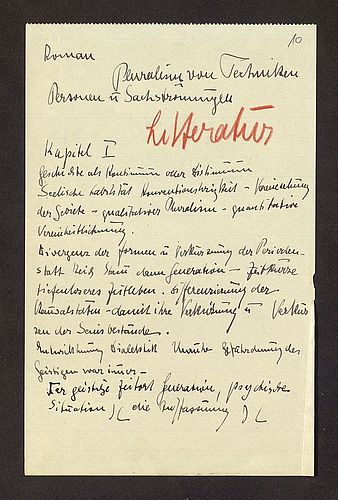 10
Roman
Pluralism von Techniken
Personen u Sachströmungen
Litteratur
Kapitel I
Geschichte als Kontinuum oder Distinuum
Seelische Labilität Konventionslosigkeit - Vereinzelung
der Gebiete - qualitativer Pluralism - quantitative
Vereinheitlichung.
Divergenz der Formen u Verkürzung der Perioden
statt Reich dann Generation - Zeitkürze
tiefenloseres Zeitleben - Differenzierung der
Kausalitäten - damit ihre Verkürzung u
der Seinsbestände.
Entwicklung Dialektik Unruhe Gefährdung des
Geistigen war immer -
Der geistige Zeitort Generation, psychische
Situation) ( die Auffassung ) (